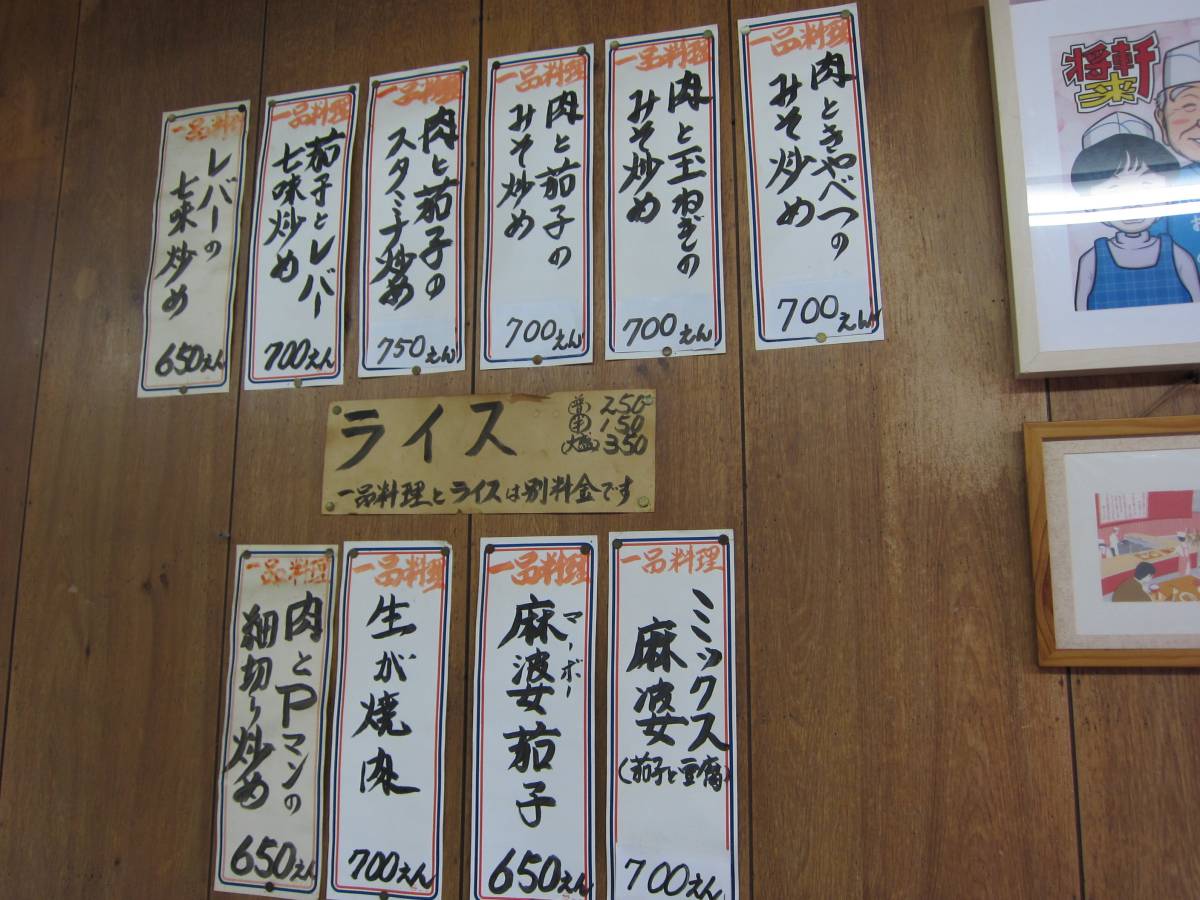 一品料理
肉ときやべつの
みそ炒め
700えん
一品料理
肉と玉ねぎの
みそ炒め
700えん
一品料理
肉と茄子の
みそ炒め
700えん
一品料理
肉と茄子の
スタミナ炒め
750えん
一品料理
茄子とレバー
七味炒め
700えん
一品料理
レバーの
七味炒め
650えん
ライス
普 250
半 150
大盛 350
一品料理とライスは別料金です
一品料理
ミックス
麻婆
(茄子と豆腐)
700えん
一品料理
マーボー
麻婆茄子
650えん
一品料理
生が焼肉
700えん
一品料理
肉とPマンの
細切り炒め
650えん
将軒
来